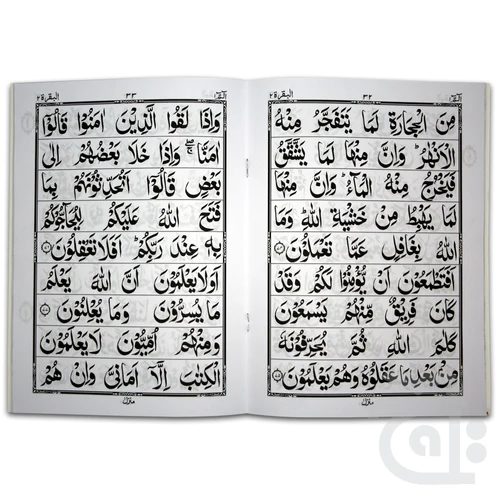 البقرة ٢
٣٢
الٓمٓ ١
مِنَ الْحِجَارَةِ لَمَا يَتَفَجَّرُ مِنْهُ
الْاَنْهٰرُ ؕ وَاِنَّ مِنْهَا لَمَا يَشَّقَّقُ
فَيَخْرُجُ مِنْهُ الْمَآءُ ؕ وَاِنَّ مِنْهَا
لَمَا يَهْبِطُ مِنْ خَشْيَةِ اللّٰهِ ؕ وَمَا
اللّٰهُ بِغَافِلٍ عَمَّا تَعْمَلُوْنَ ﴿۷۴﴾
اَفَتَطْمَعُوْنَ اَنْ يُّؤْمِنُوْا لَكُمْ وَقَدْ
كَانَ فَرِيْقٌ مِّنْهُمْ يَسْمَعُوْنَ
كَلٰمَ اللّٰهِ ثُمَّ يُحَرِّفُوْنَهٗ
مِنْۢ بَعْدِ مَا عَقَلُوْهُ وَهُمْ يَعْلَمُوْنَ ﴿۷۵﴾
منزل ١
البقرة ٢
٣٣
الٓمٓ ١
وَاِذَا لَقُوا الَّذِيْنَ اٰمَنُوْا قَالُوْۤا
اٰمَنَّا ۖۚ وَاِذَا خَلَا بَعْضُهُمْ اِلٰى
بَعْضٍ قَالُوْۤا اَتُحَدِّثُوْنَهُمْ بِمَا
فَتَحَ اللّٰهُ عَلَيْكُمْ لِيُحَآجُّوْكُمْ
بِهٖ عِنْدَ رَبِّكُمْ ؕ اَفَلَا تَعْقِلُوْنَ ﴿۷۶﴾
اَوَلَا يَعْلَمُوْنَ اَنَّ اللّٰهَ يَعْلَمُ
مَا يُسِرُّوْنَ وَمَا يُعْلِنُوْنَ ﴿۷۷﴾
وَمِنْهُمْ اُمِّيُّوْنَ لَا يَعْلَمُوْنَ
الْكِتٰبَ اِلَّاۤ اَمَانِيَّ وَاِنْ هُمْ
منزل ١